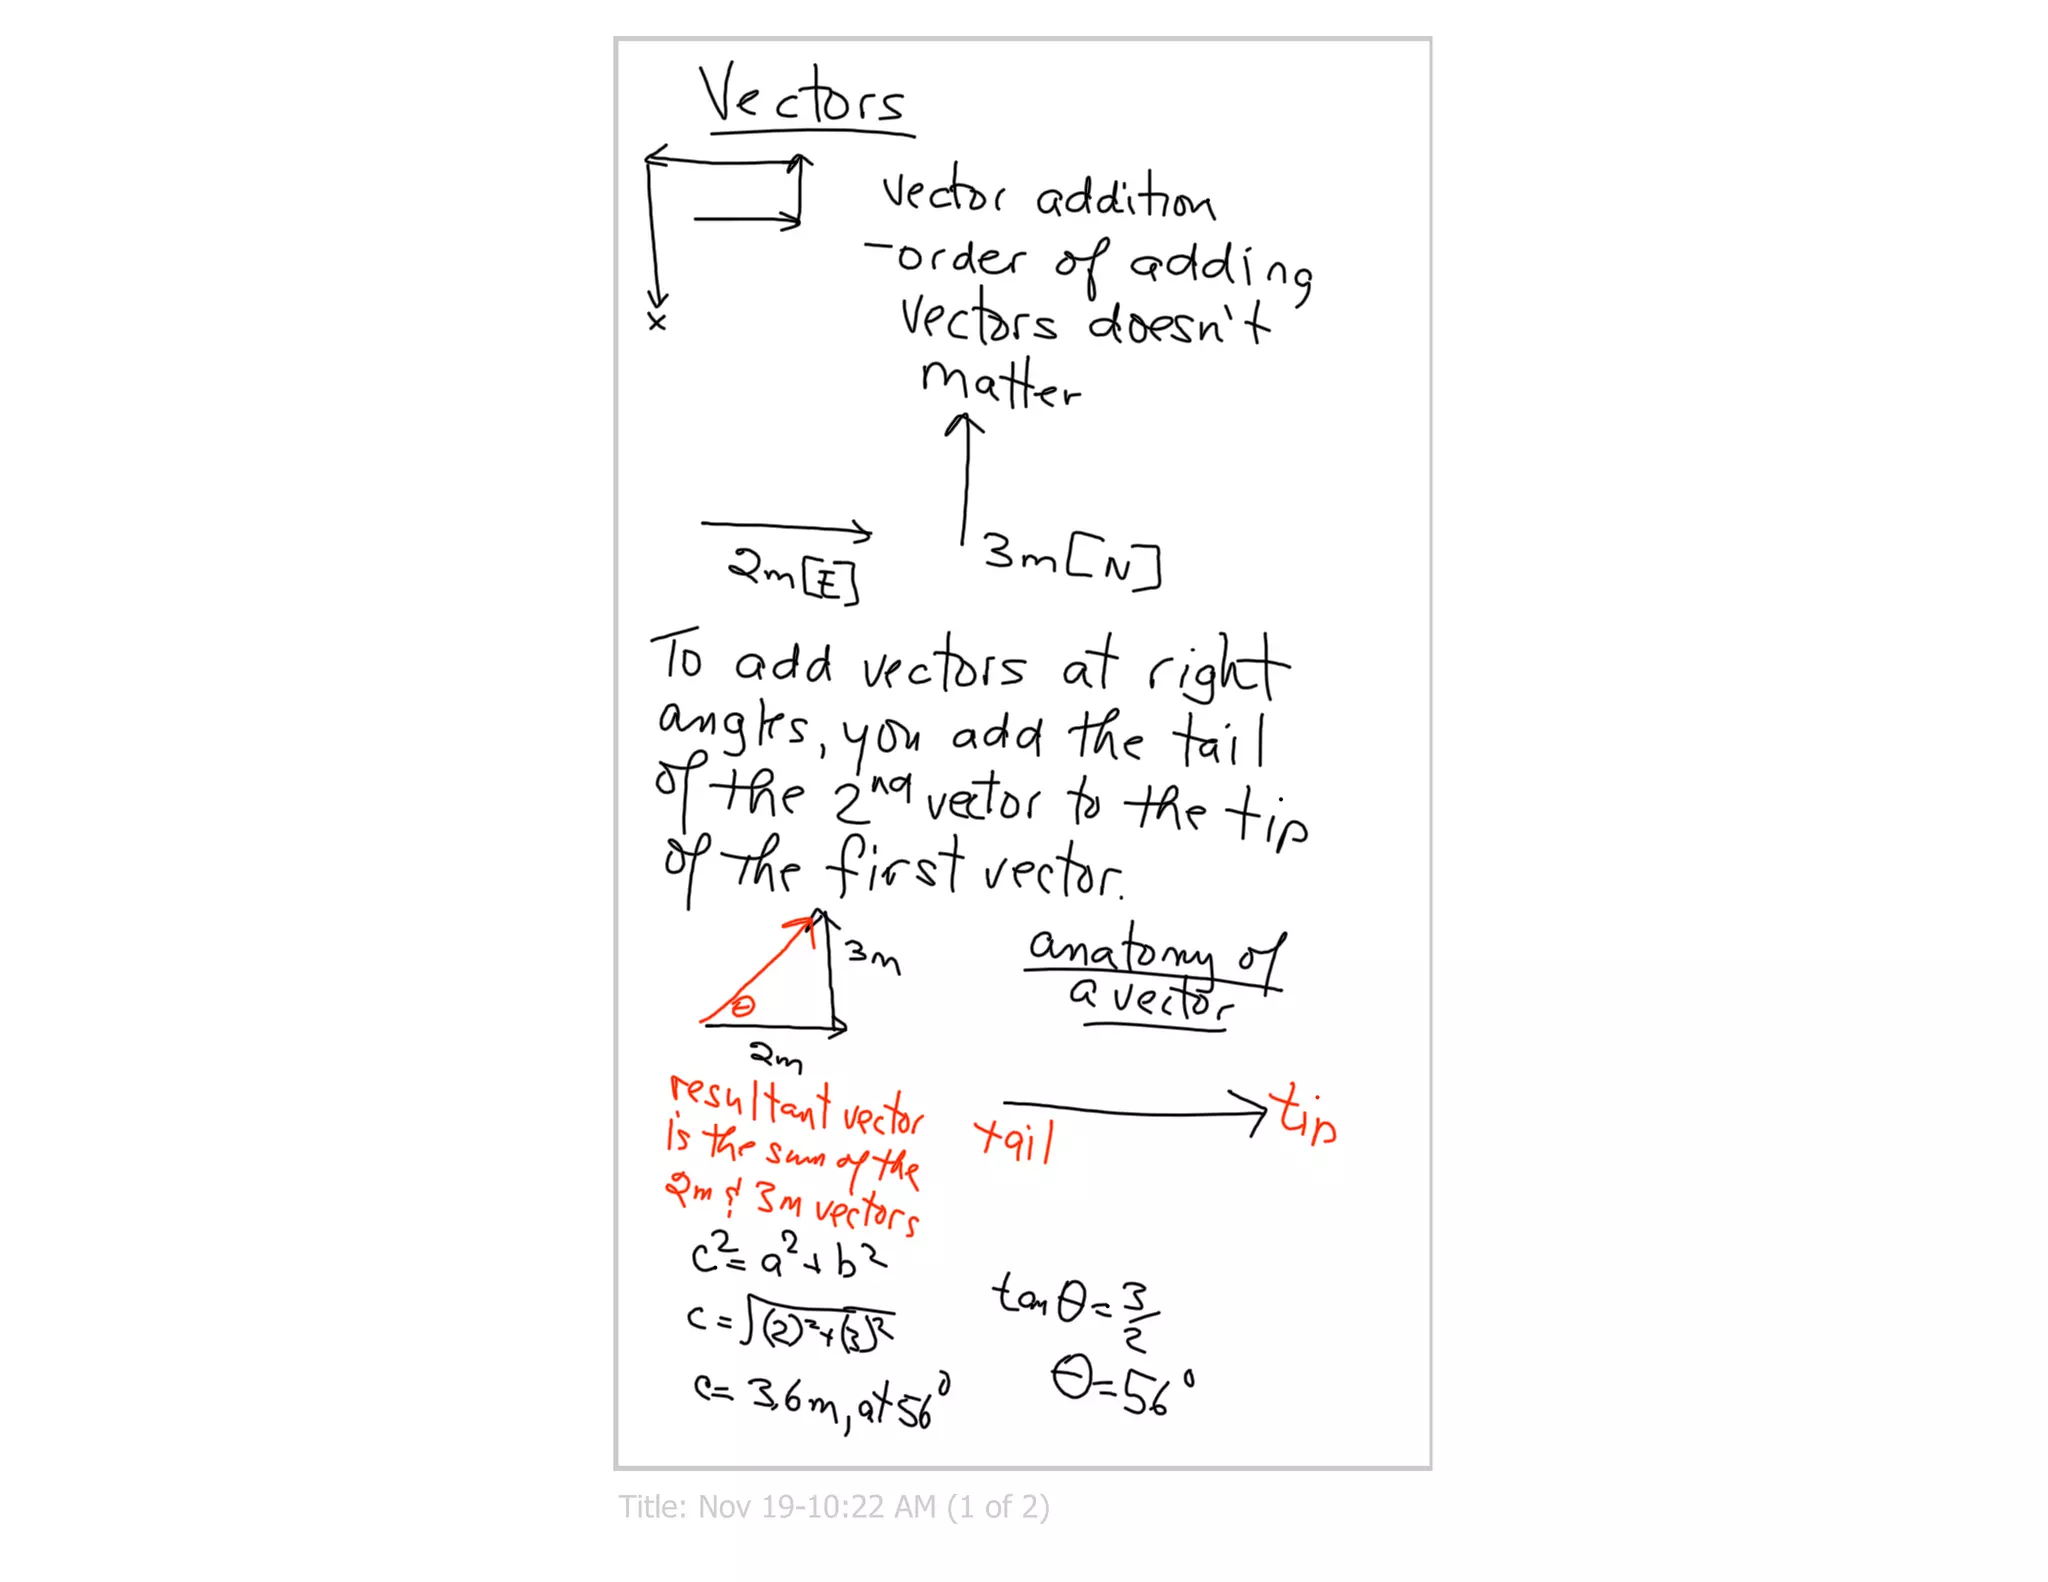 Vectors
vector addition
-order of adding
vectors doesn't
matter
x
2m[E]
3m[N]
To add vectors at right
angles, you add the tail
of the 2nd vector to the tip
of the first vector.
3m
θ
2m
anatomy of
a vector
tail
tip
resultant vector
is the sum of the
2m & 3m vectors
c²=a²+b²
c=√(2)²+(3)²
c=3.6m, at 56°
tanθ=3/2
θ=56°
Title: Nov 19-10:22 AM (1 of 2)